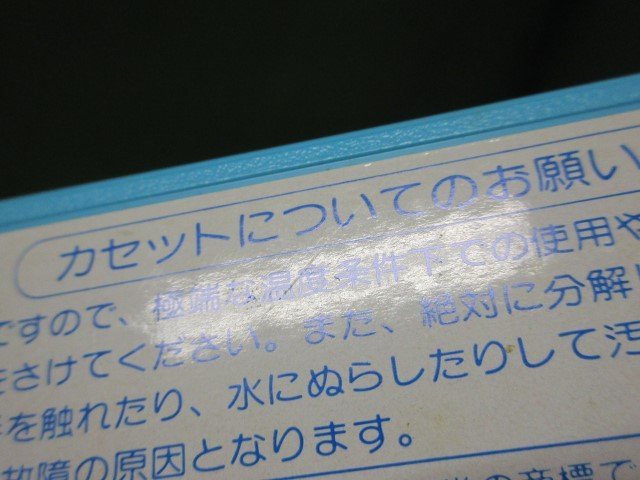 カセットについてのお願い
ですので、極端な温度条件下での使用や
をさけてください。また、絶対に分解し
を触れたり、水にぬらしたりして汚
故障の原因となります。
の商標で